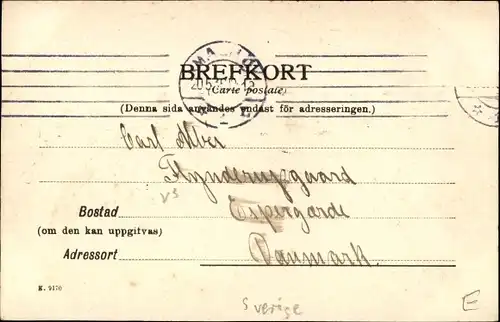 BREFKORT
(Carte postale)
(Denna sida användes endast för adresseringen.)
Carl Alber
Flynderupgaard
Bostad Espergärde
(om den kan uppgitvas)
Adressort Danmark.
K. 9170
Sverige
E